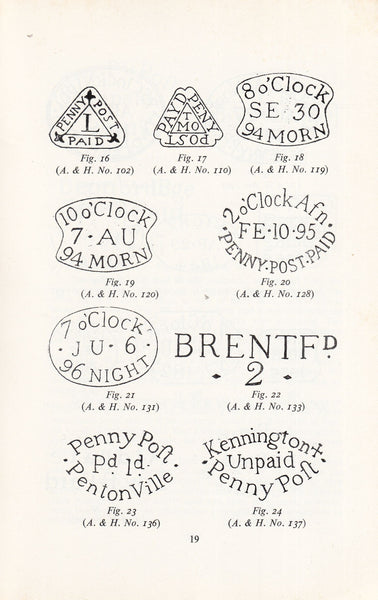 PENNY POST PAID
L
Fig. 16
(A. & H. No. 102)
PAYD PENY POST
T
MO
Fig. 17
(A. & H. No. 110)
8 o'Clock
SE 30
94 MORN
Fig. 18
(A. & H. No. 119)
10 o'Clock
7·AU
94 MORN
Fig. 19
(A. & H. No. 120)
2 o'Clock Afn.
FE·10·95
·PENNY·POST·PAID
Fig. 20
(A. & H. No. 128)
7 o'Clock
·JU·6·
96 NIGHT
Fig. 21
(A. & H. No. 131)
BRENTFD
· 2 ·
Fig. 22
(A. & H. No. 133)
Penny Poſt
·Pd 1d.·
PentonVille
Fig. 23
(A. & H. No. 136)
Kennington+
·Unpaid
Penny Poſt·
Fig. 24
(A. & H. No. 137)
19